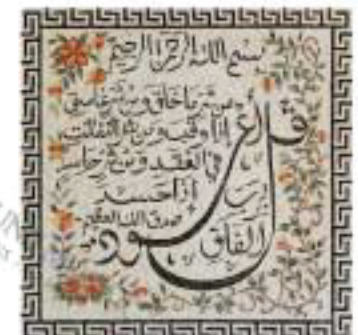 بسم الله الرحمن الرحيم
قل أعوذ
برب
الفلق
من شر ما خلق ومن شر غاسق
إذا وقب ومن شر النفثت
في العقد ومن شر حاسد
إذا حسد
صدق الله العظيم